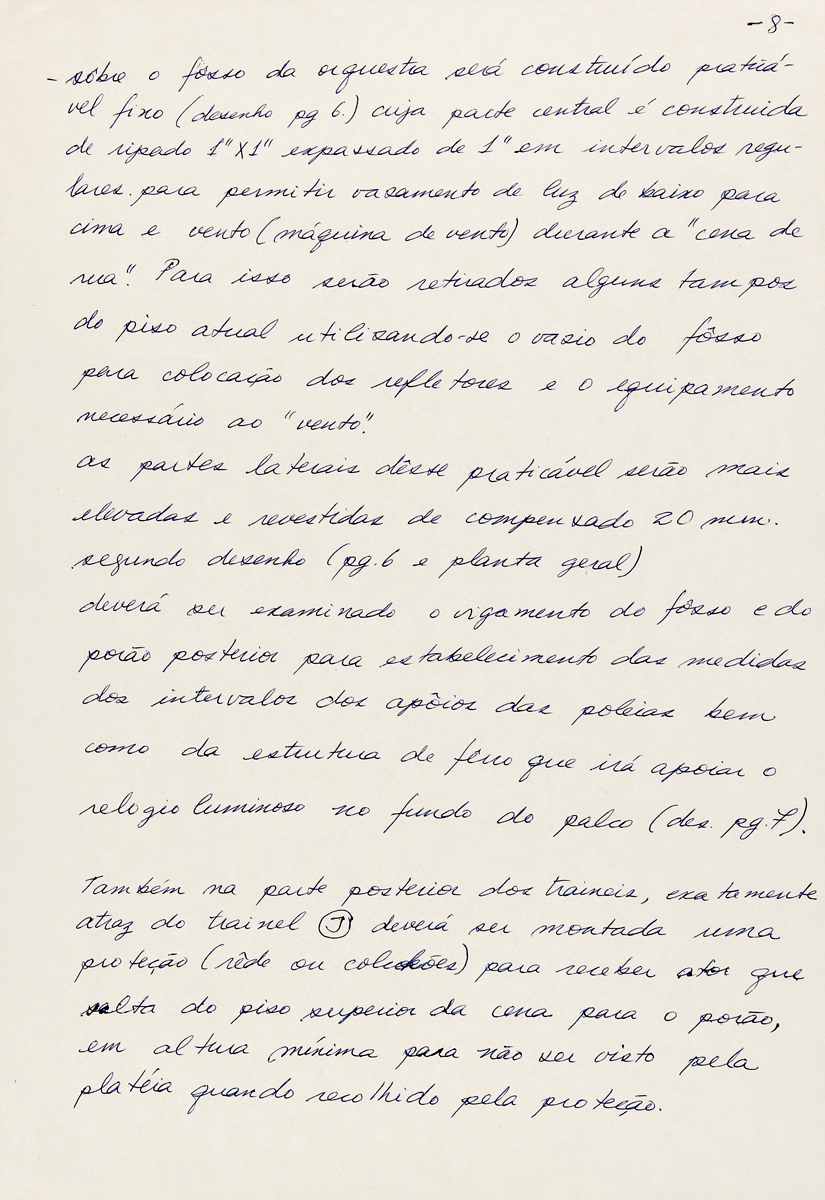 -8-
- sôbre o fôsso da orquestra será construído praticá-
vel fixo (desenho pg 6.) cuja parte central é construida
de ripado 1"X1" expassado de 1" em intervalos regu-
lares. para permitir vasamento de luz de baixo para
cima e vento (máquina de vento) durante a "cena de
rua". Para isso serão retirados alguns tampos
do piso atual utilisando-se o vasio do fôsso
para colocação dos refletores e o equipamento
necessário ao "vento".
as partes laterais dêsse praticável serão mais
elevadas e revestidas de compensado 20 mm.
segundo desenho (pg.6 e planta geral)
deverá ser examinado o vigamento do fôsso e do
porão posterior para estabelecimento das medidas
dos intervalos dos apôios das poleias bem
como da estrutura de ferro que irá apoiar o
relogio luminoso no fundo do palco (des. pg.7).
Também na parte posterior dos traineis, exatamente
atraz do trainel J deverá ser montada uma
proteção (rêde ou colchões) para receber ator que
salta do piso superior da cena para o porão,
em altura mínima para não ser visto pela
platéia quando recolhido pela proteção.